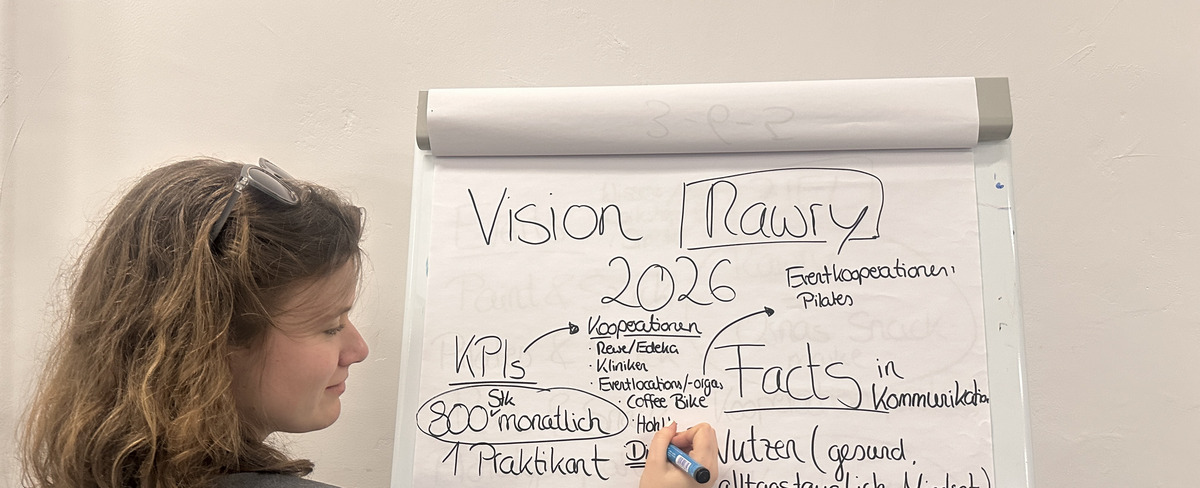 Vision Rawry
2026
Eventkooperationen:
Pilates
KPIs
Kooperationen
· Rewe/Edeka
· Kliniken
· Eventlocations/-orgas
· Coffee Bike
800 Stk monatlich
1 Praktikant
Facts in
Kommunikation
Nutzen (gesund,
alltagstauglich, Mindset)